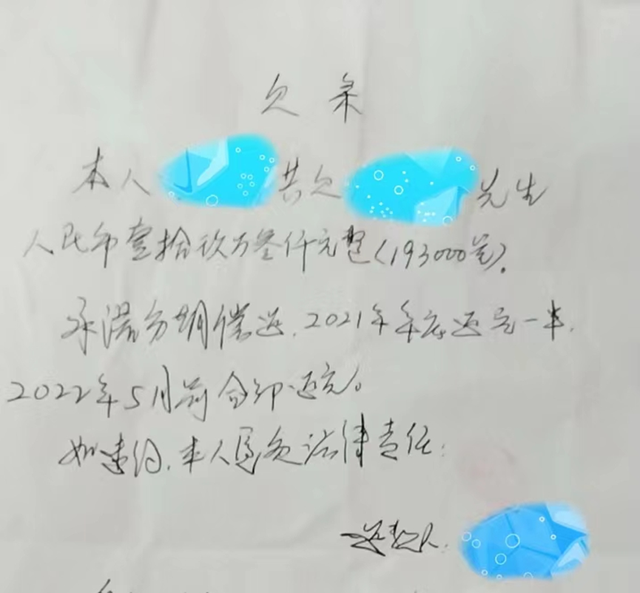 欠条
本人 共欠 先生
人民币壹拾玖万叁仟元整(193000元).
承诺分期偿还.2021年年底还完一半.
2022年5月前全部还完。
如违约.本人愿负法律责任: